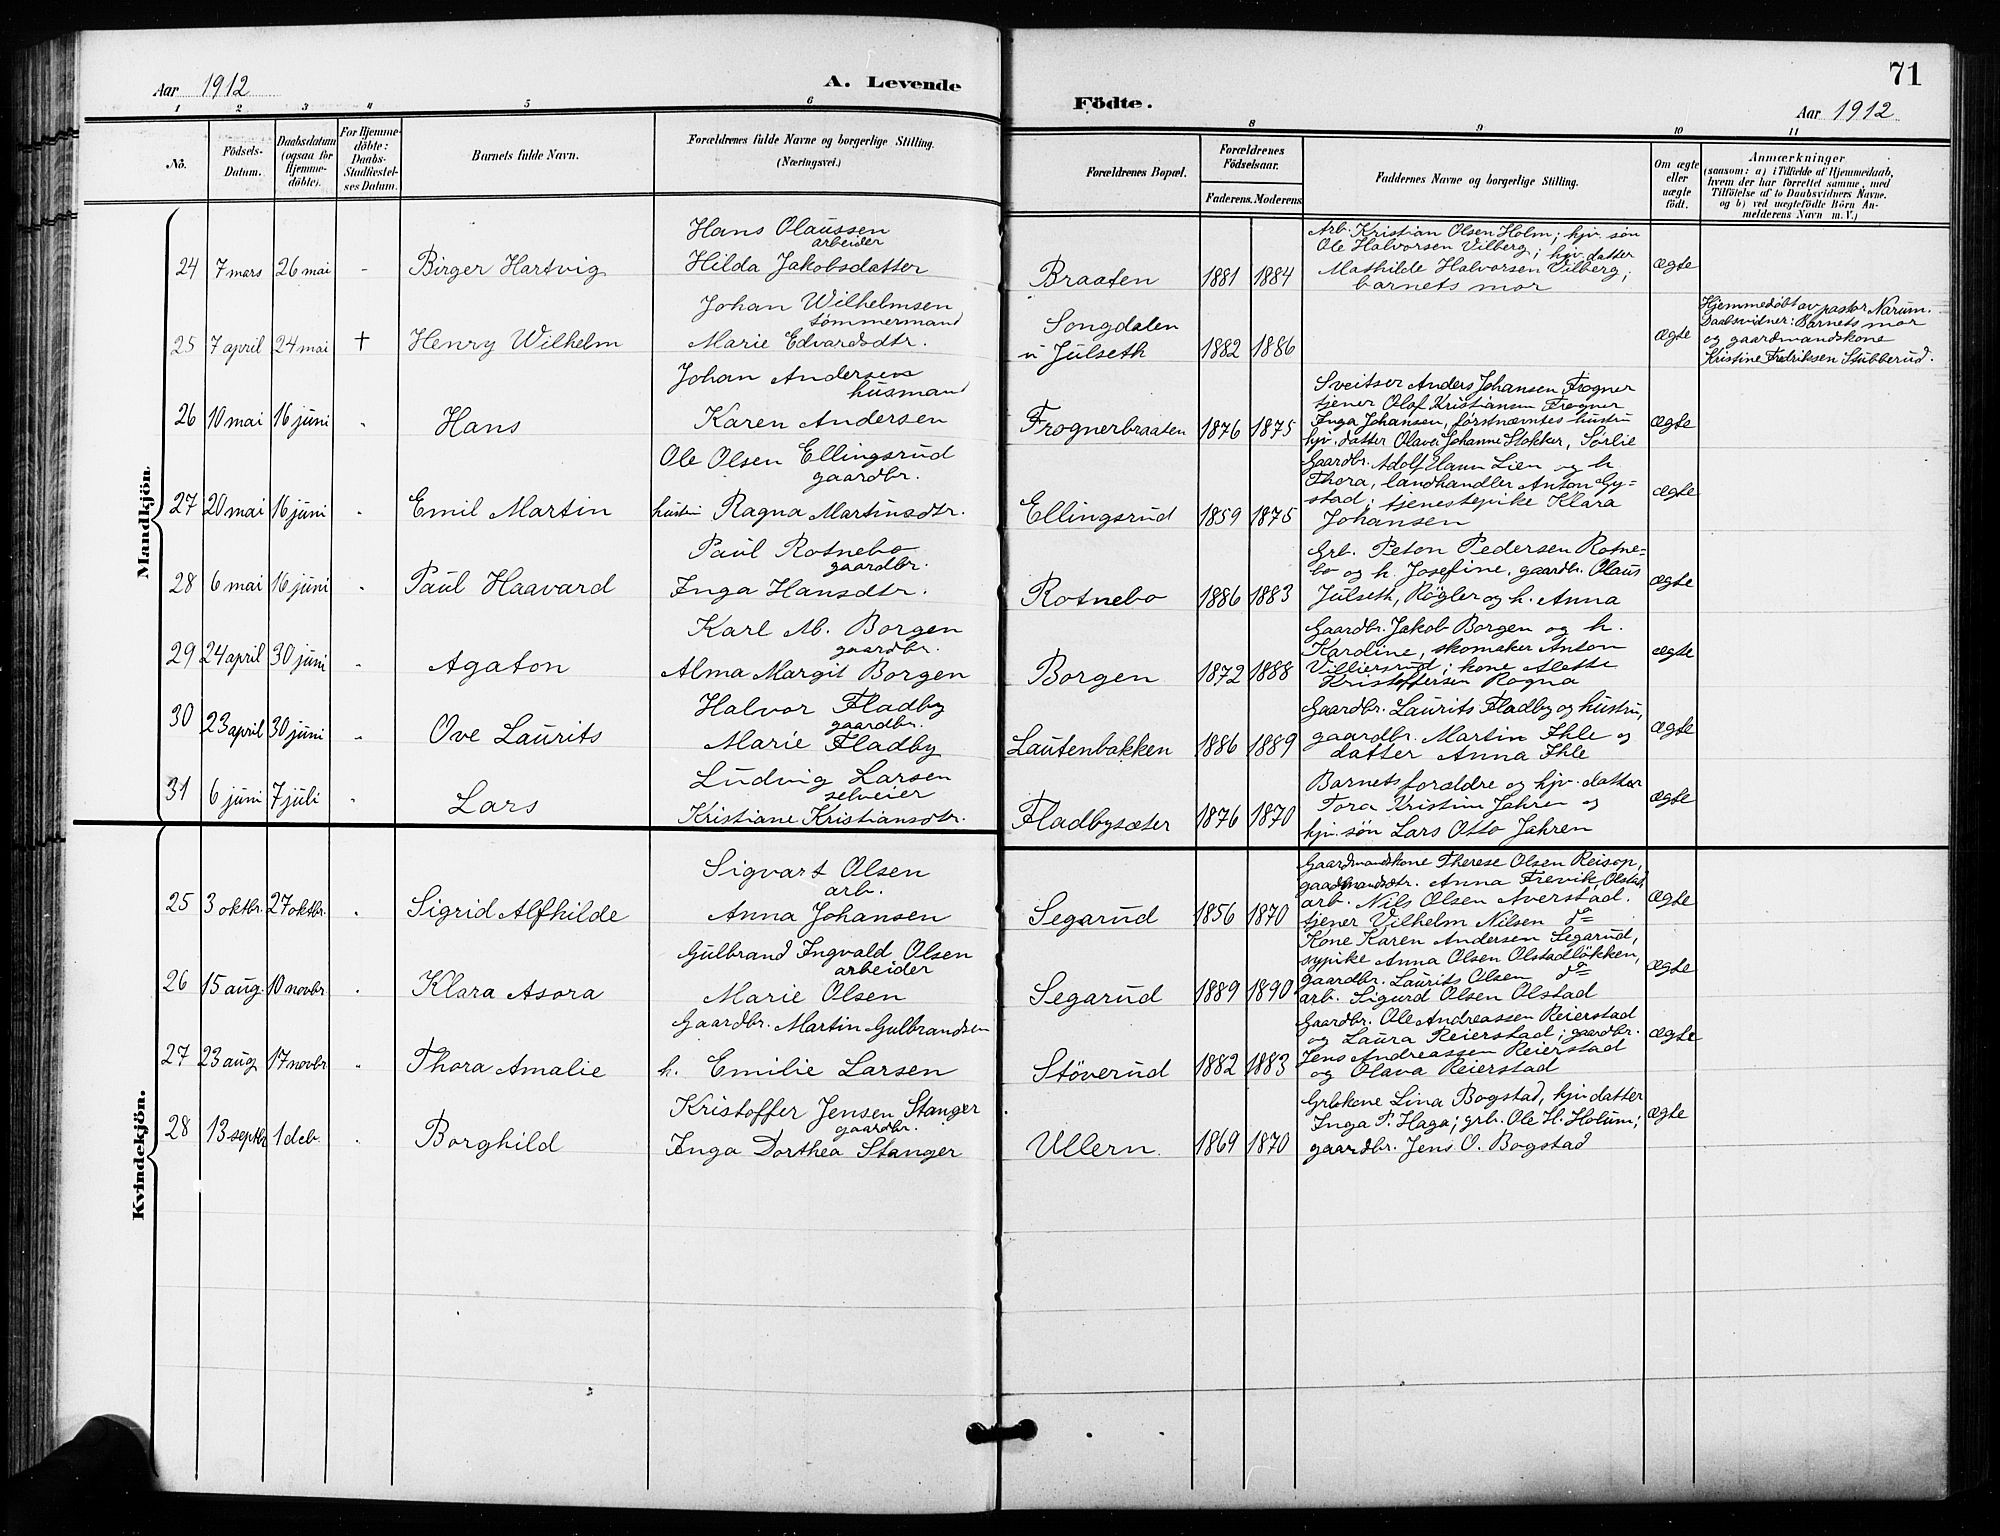 Aar 1912
A. Levende
1 2 3 4 5 6
No.
Födsels-
Datum.
Daabsdatum
(ogsaa for
Hjemme-
döbte).
For Hjemme-
döbte:
Daabs-
Stadfæstel-
ses Datum.
Barnets fulde Navn.
Forældrenes fulde Navne og borgerlige Stilling.
(Næringsvei.)
Mandkjön.
Hans Olaussen
arbeider
24 7 mars 26 mai - Birger Hartvig Hilda Jakobsdatter
Johan Wilhelmsen
tømmermand
25 7 april 24 mai † Henry Wilhelm Marie Edvardsdtr.
Johan Andersen
husmand
26 10 mai 16 juni - Hans Karen Andersen
Ole Olsen Ellingsrud
gaardbr.
27 20 mai 16 juni - Emil Martin hustru Ragna Martinsdtr.
Paul Rotnebo
gaardbr.
28 6 mai 16 juni - Paul Haavard Inga Hansdtr.
Karl M. Borgen
gaardbr.
29 24 april 30 juni - Agaton Alma Margit Borgen
Halvor Fladby
gaardbr.
30 23 april 30 juni - Ove Laurits Marie Fladby
Ludvig Larsen
selveier
31 6 juni 7 juli - Lars Kristiane Kristiansdtr.
Kvindekjön.
Sigvart Olsen
arb.
25 3 oktbr. 27 oktbr. - Sigrid Alfhilde Anna Johansen
Gulbrand Ingvald Olsen
arbeider
26 15 aug. 10 novbr - Klara Asora Marie Olsen
Gaardbr. Martin Gulbrandsen
27 23 aug 17 novbr - Thora Amalie h. Emilie Larsen
Kristoffer Jensen Stanger
gaardbr.
28 13 septbr 1 deb. - Borghild Inga Dorthea Stanger
71
Födte.
Aar 1912
8 9 10 11
Forældrenes Bopæl.
Forældrenes
Födselsaar.
Faderens. Moderens.
Faddernes Navne og borgerlige Stilling.
Om ægte
eller
uægte
födt.
Anmærkninger
(saasom: a) i Tilfælde af Hjemmedaab,
hvem der har forrettet samme, med
Tilföielse af to Daabsvidners Navne,
og b) ved uægtefödte Börn An-
melderens Navn m. V.)
Braaten 1881 1884
Arb. Kristian Olsen Holm; hjv. søn
Ole Halvorsen Vilberg; hjv. datter
Mathilde Halvorsen Vilberg;
barnets mor
ægte
Songdalen
u Julseth 1882 1886
ægte
Hjemmedøbt av pastor Narum.
Daabsvidner: Barnets mor
og gaardmandskone
Kristine Fredriksen Stubberud.
Frognerbraaten 1876 1875
Sveitser Anders Johansen Frogner
tjener Olaf Kristiansen Frogner
Inga Johansen, førstnævntes hustru
hjv. datter Johanne Stokker, Sørlie
ægte
Ellingsrud 1859 1875
Gaardbr. Adolf Lien og h.
Thora, landhandler Anton Gy=
stad; tjenestepike Klara
Johansen
ægte
Rotnebo 1886 1883
Grb. Pedersen Rotne-
bo og h. Josefine, gaardbr. Olaus
Julseth, Røgler og h. Anna
ægte
Borgen 1872 1888
Gaardbr. Jakob Borgen og h.
Karoline, skomaker Anton
Villiersrud; kone Alette
Kristoffersen Rogna
ægte
Lautenbakken 1886 1889
Gaardbr. Laurits Fladby og hustru,
gaardbr. Martin Ihle og
datter Anna Ihle
ægte
Fladbysæter 1876 1870
Barnets forældre og hjv. datter
Tora Kristine Jahren og
hjv. søn Lars Otto Jahren
ægte
Segarud 1856 1870
Gaardmandskone Therese Olsen Reisop,
gaardmandsdtr. Anna Frevik, Olstad,
arb. Nils Olsen Averstad.
tjener Vilhelm Nilsen do
ægte
Segarud 1889 1890
Kone Karen Andersen Segarud,
sypike Anna Olsen Olstadløkken,
gaardbr. Laurits Olsen do
arb. Sigurd Olsen Olstad
ægte
Støverud 1882 1883
Gaardbr. Ole Andreassen Reierstad
og Laura Reierstad; gaardbr.
Jens Andreassen Reierstad
og Olava Reierstad
ægte
Ullern 1869 1870
Grbkone Lina Bogstad, hjv. datter
Inga P. Haga; grb. Ole H. Holum;
gaardbr. Jens O. Bogstad
ægte